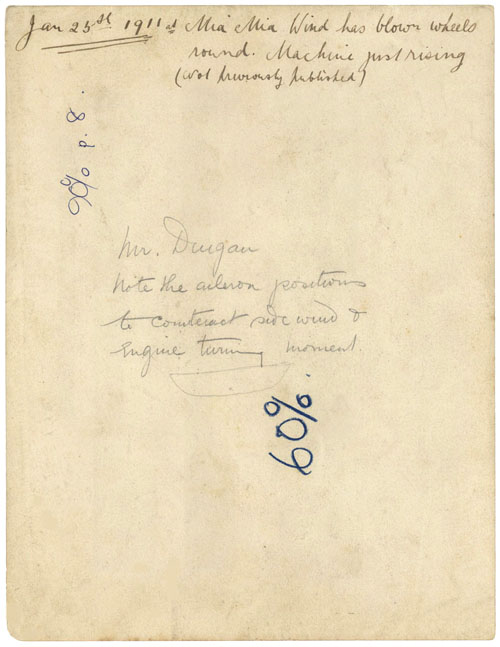 Jan 23rd 1911 at Mia Mia Wind has blown wheels
round. Machine just rising
(Not previously published)
90% p. 8.
Mr. Duigan
Note the aileron positions
to counteract side wind &
Engine turning moment.
60%.